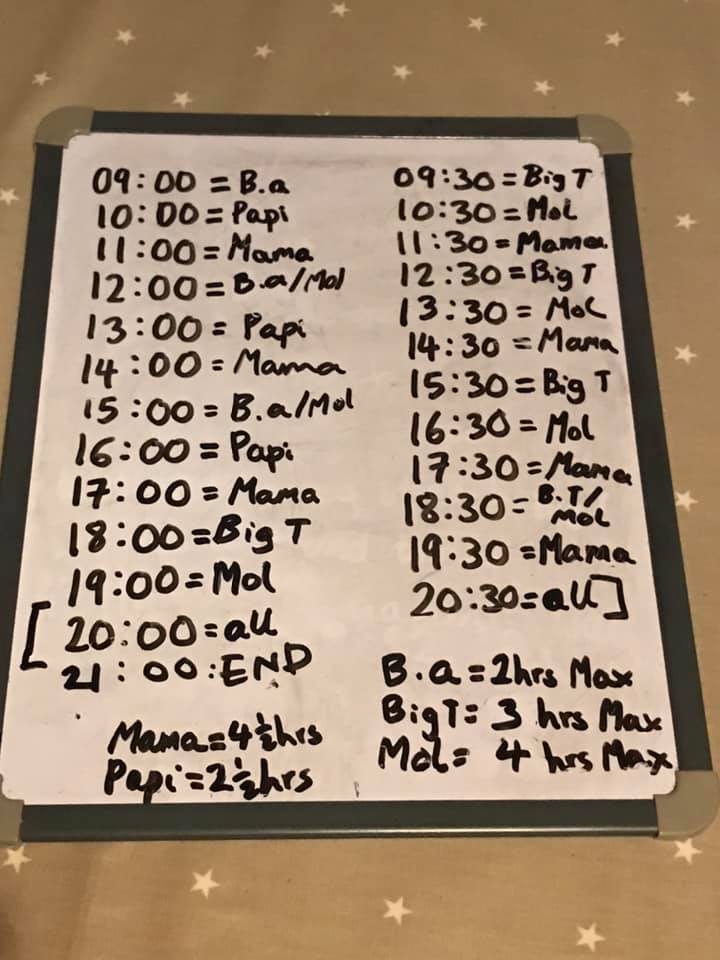 09:00 = B.a
10:00 = Papi
11:00 = Mama
12:00 = B.a/Mol
13:00 = Papi
14:00 = Mama
15:00 = B.a/Mol
16:00 = Papi
17:00 = Mama
18:00 = Big T
19:00 = Mol
[20:00 = all
21:00 : END
Mama = 4½hrs
Papi = 2½hrs
09:30 = Big T
10:30 = Mol
11:30 = Mama
12:30 = Big T
13:30 = Mol
14:30 = Mama
15:30 = Big T
16:30 = Mol
17:30 = Mama
18:30 = B.T/
Mol
19:30 = Mama
20:30 = all]
B.a = 2hrs Max
Big T = 3 hrs Max
Mol = 4 hrs Max